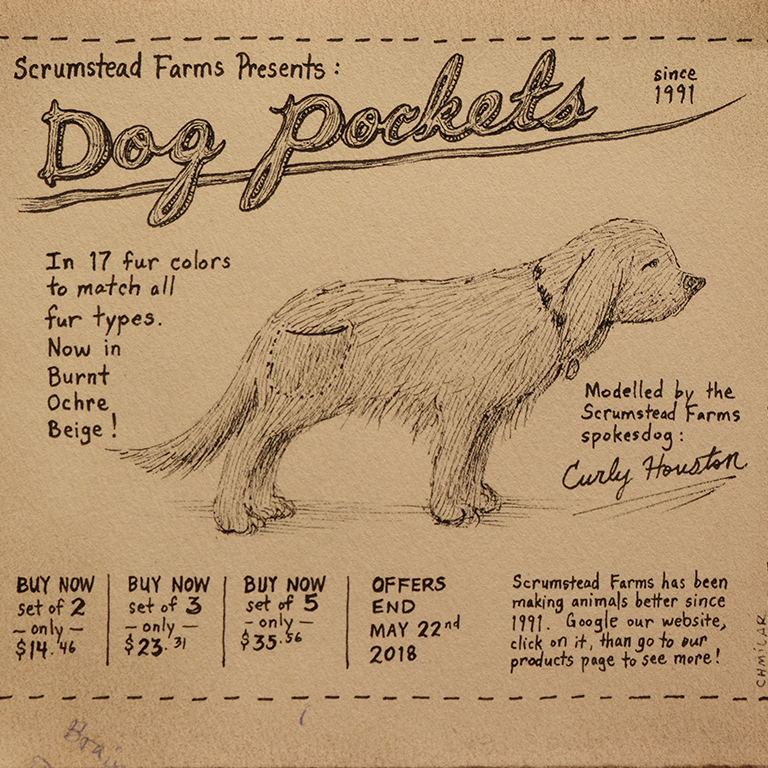 Scrumstead Farms Presents:
since
1991
Dog Pockets
In 17 fur colors
to match all
fur types.
Now in
Burnt
Ochre
Beige!
Modelled by the
Scrumstead Farms
spokesdog:
Curly Houston
BUY NOW
set of 2
- only -
$14.46
BUY NOW
set of 3
- only -
$23.31
BUY NOW
set of 5
- only -
$35.56
OFFERS
END
MAY 22nd
2018
Scrumstead Farms has been
making animals better since
1991. Google our website,
click on it, than go to our
products page to see more!
CHMILAR